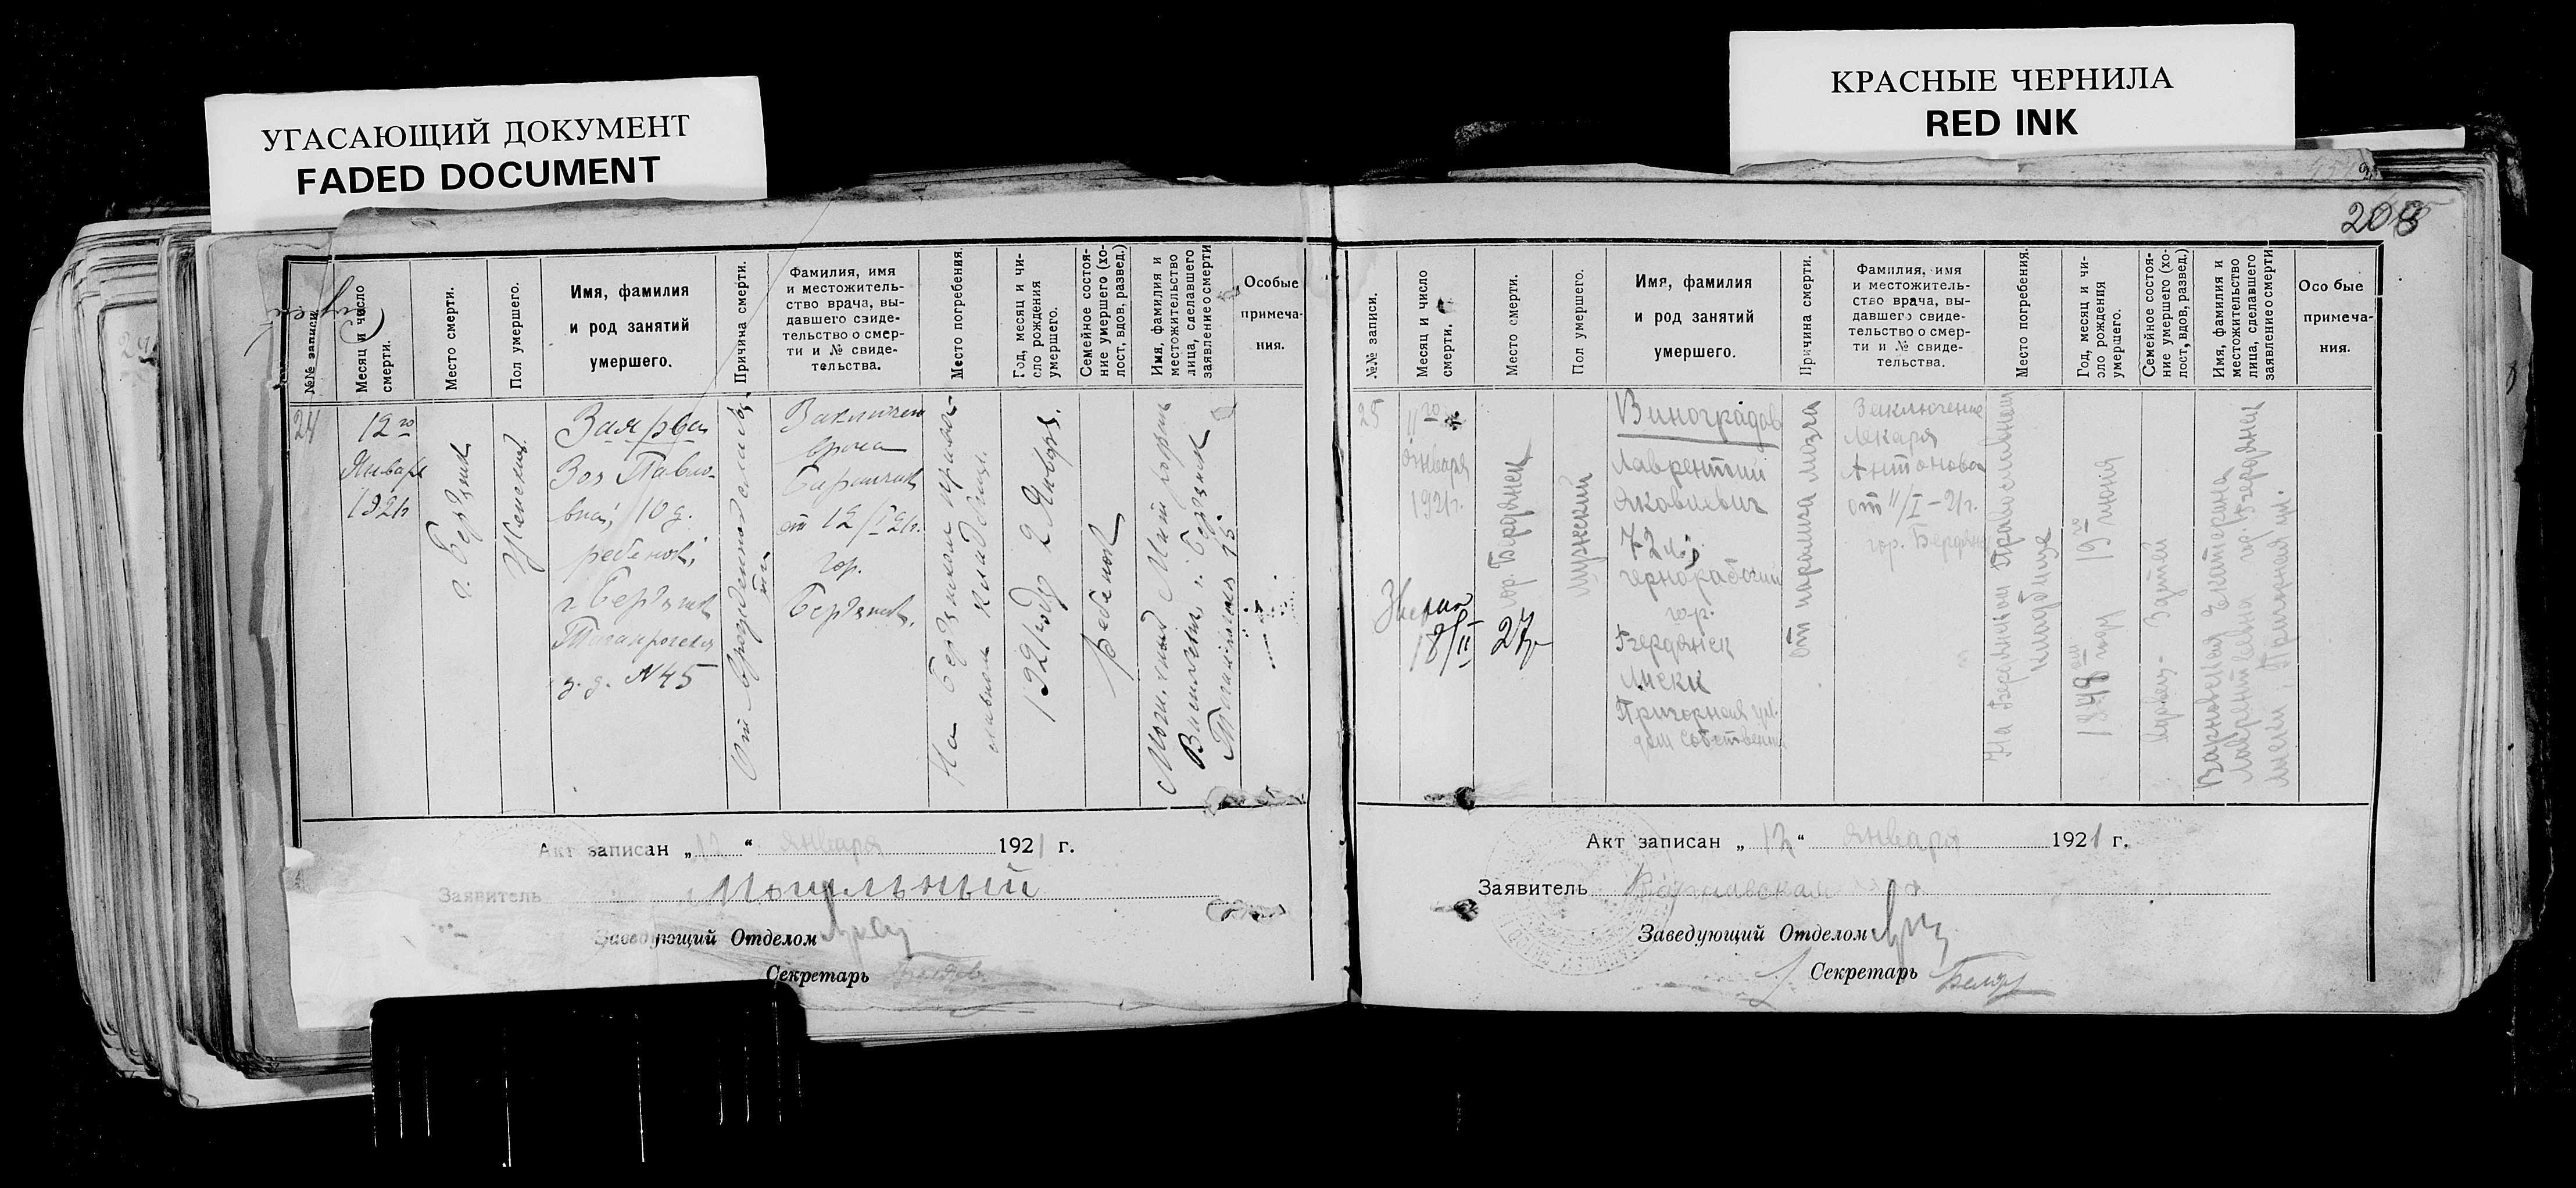 УГАСАЮЩИЙ ДОКУМЕНТ
FADED DOCUMENT
КРАСНЫЕ ЧЕРНИЛА
RED INK
208
№№ записи
Месяц и число смерти.
Место смерти.
Пол умершего.
Имя, фамилия
и род занятий
умершего.
Причина смерти.
Фамилия, имя
и местожитель-
ство врача, вы-
давшего свиде-
тельство о смер-
ти и № свиде-
тельства.
Место погребения.
Год, месяц и чи-
сло рождения
умершего.
Семейное состоя-
ние умершего (хо-
лост, вдов, развед.)
Имя, фамилия и
местожительство
лица, сделавшего
заявление о смерти
Особые
примеча-
ния.
24
12го
Января
1921г
г. Бердянск
Женский
Зоя Павло-
вна, 10 д.
ребенок,
г. Бердянск
Таганрогская
д. № 45
От врожденной слабо
сти
Заключен
врача
от 12/I 21г.
гор.
Бердянск.
На Бердянском правос-
лавном кладбище.
1921 году 2 Января.
ребенок
г. Бердянск
Акт записан „12“ января 1921 г.
Заявитель
Заведующий Отделом
Секретарь
№№ записи.
Месяц и число
смерти.
Место смерти.
Пол умершего.
Имя, фамилия
и род занятий
умершего.
Причина смерти.
Фамилия, имя
и местожитель-
ство врача, вы-
давшего свиде-
тельство о смер-
ти и № свиде-
тельства.
Место погребения.
Год, месяц и чи-
сло рождения
умершего.
Семейное состоя-
ние умершего (хо-
лост, вдов, развед.)
Имя, фамилия и
местожительство
лица, сделавшего
заявление о смерти
Особые
примеча-
ния.
25
11го
Января
1921г.
18/II
гор. Бердянск
27
Мужской
Виноградов
Лаврентий
Яковлевич
72 л.
чернорабочий
гор.
Бердянск
Лиски
Пригорная ул.
дом собственн
От паралича мозга
Заключение
лекаря
Антонова
от 11/I-21г.
гор. Бердянск
На Бердянском Православном
кладбище
1848 году 19го июня
Варнавская Екатерина
Лаврентьевна гор. Бердянск
Лиски, Пригорная ул.
Акт записан „12“ января 1921 г.
Заявитель Варнавская
Заведующий Отделом
Секретарь